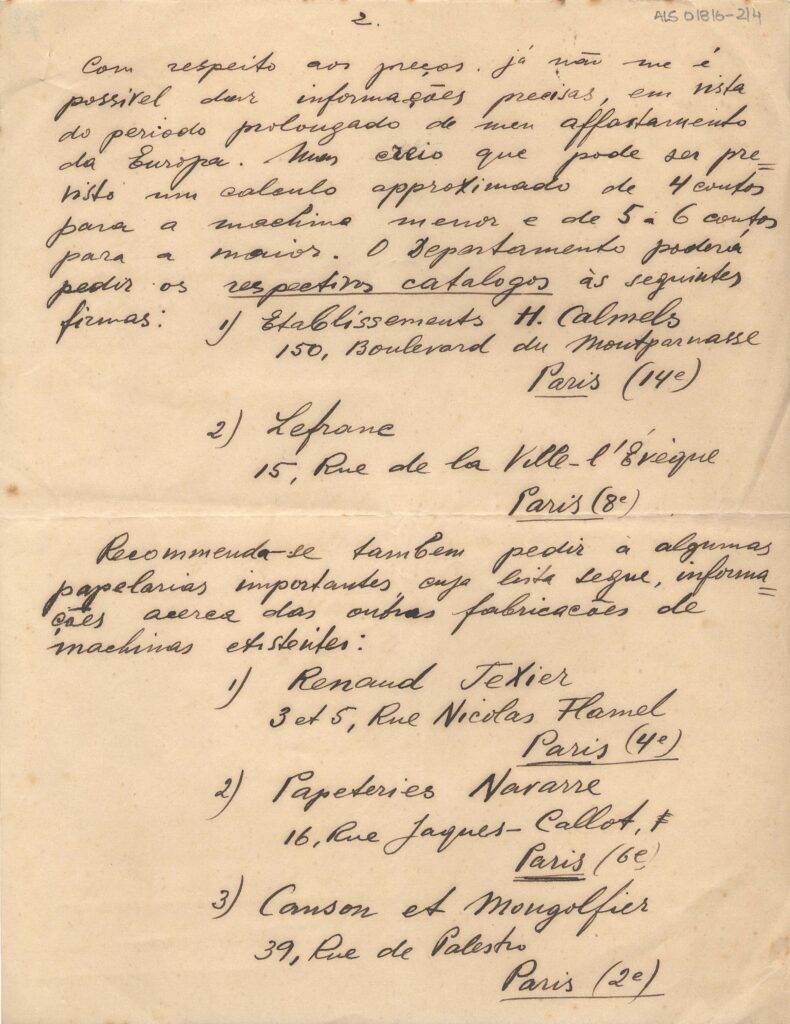 2.
ALS 01816-2/4
Com respeito aos preços. já não me é
possivel dar informações precisas, em vista
do periodo prolongado de meu affastamento
da Europa. Mas creio que pode ser pre=
visto um calculo approximado de 4 contos
para a machina menor e de 5 à 6 contos
para a maior. O Departamento poderá
pedir os respectivos catalogos às seguintes
firmas: 1) Etablissements H. Calmels
150, Boulevard du Montparnasse
Paris (14e)
2) Lefranc
15, Rue de la Ville-l'Évèque
Paris (8e)
Recommenda-se tambem pedir à algumas
papelarias importantes, cuja lista segue, informa=
ções acerca das outras fabricacões de
machinas existentes:
1) Renaud Texier
3 et 5, Rue Nicolas Flamel
Paris (4e)
2) Papeteries Navarre
16, Rue Jaques-Callot,
Paris (6e)
3) Canson et Mongolfier
39, Rue de Palestro
Paris (2e)